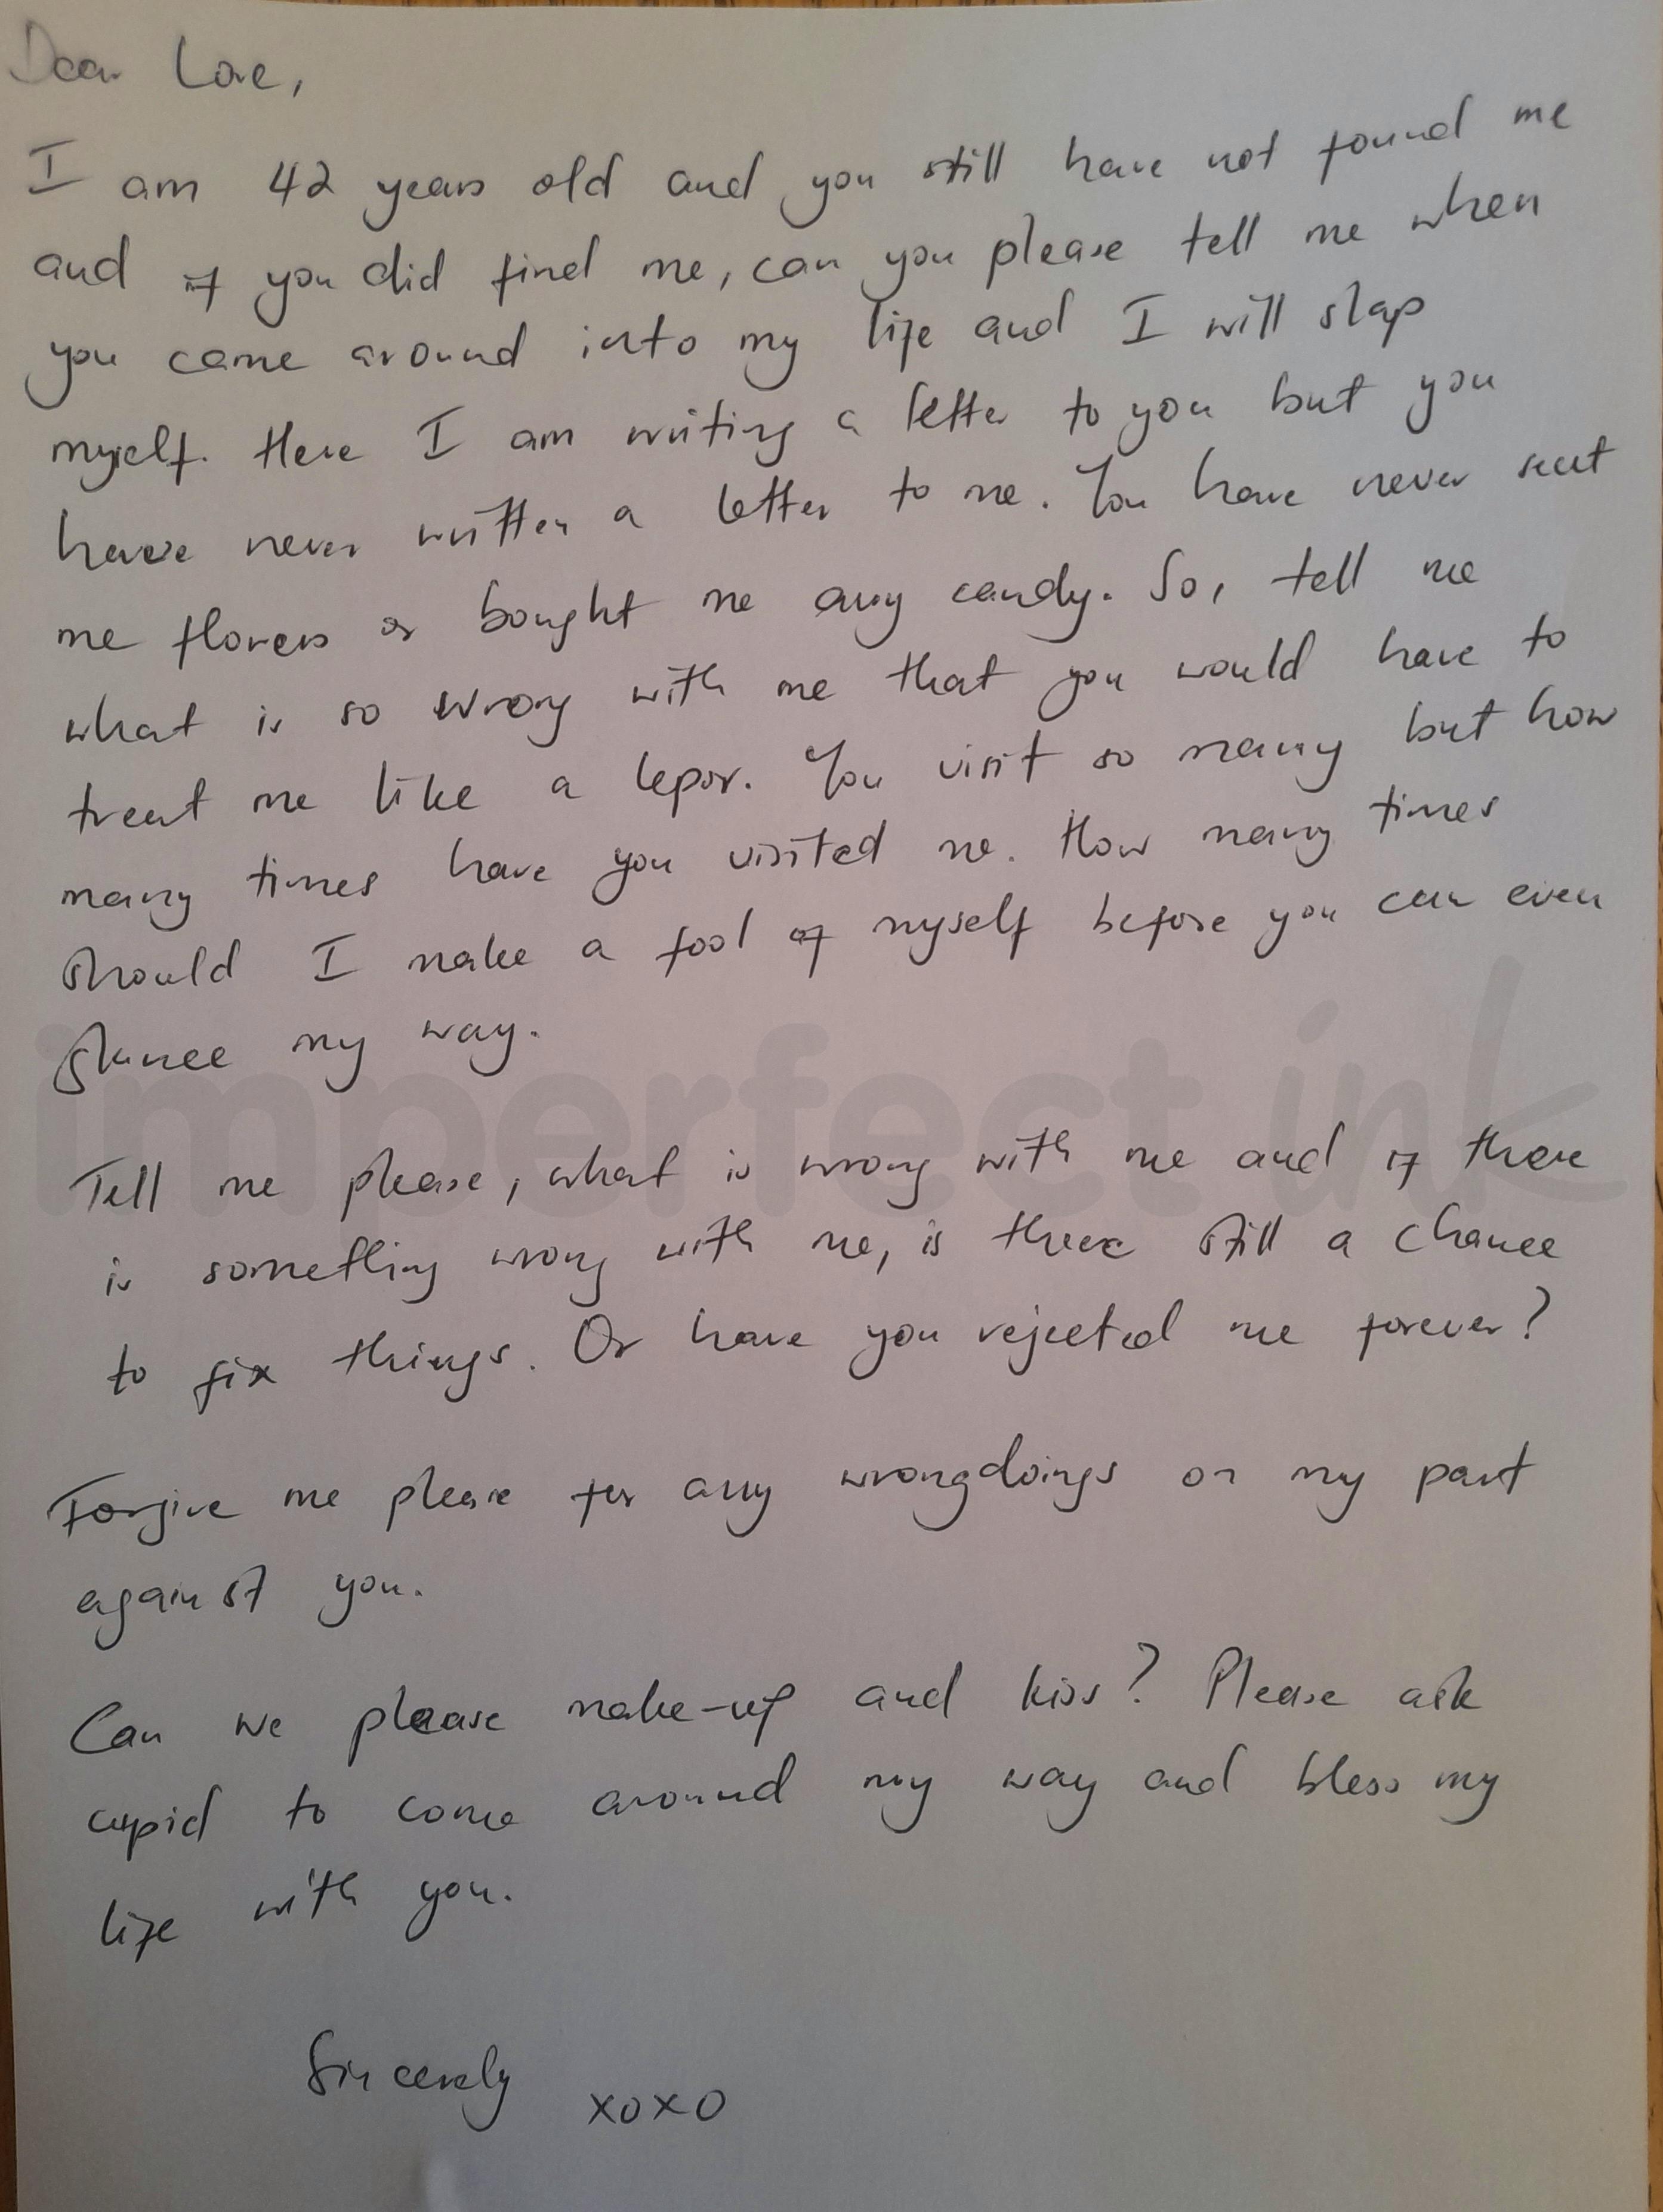 Dear Love,
I am 42 years old and you still have not found me
and if you did find me, can you please tell me when
you came around into my life and I will slap
myself. Here I am writing a letter to you but you
have never written a letter to me. You have never sent
me flowers or bought me any candy. So, tell me
what is so wrong with me that you would have to
treat me like a lepor. You visit so many but how
many times have you visited me. How many times
should I make a fool of myself before you can even
glance my way.
imperfect ink
Tell me please, what is wrong with me and if there
is something wrong with me, is there still a chance
to fix things. Or have you rejected me forever?
Forgive me please for any wrongdoings on my part
against you.
Can we please make-up and kiss? Please ask
cupid to come around my way and bless my
life with you.
Sincerely xoxo